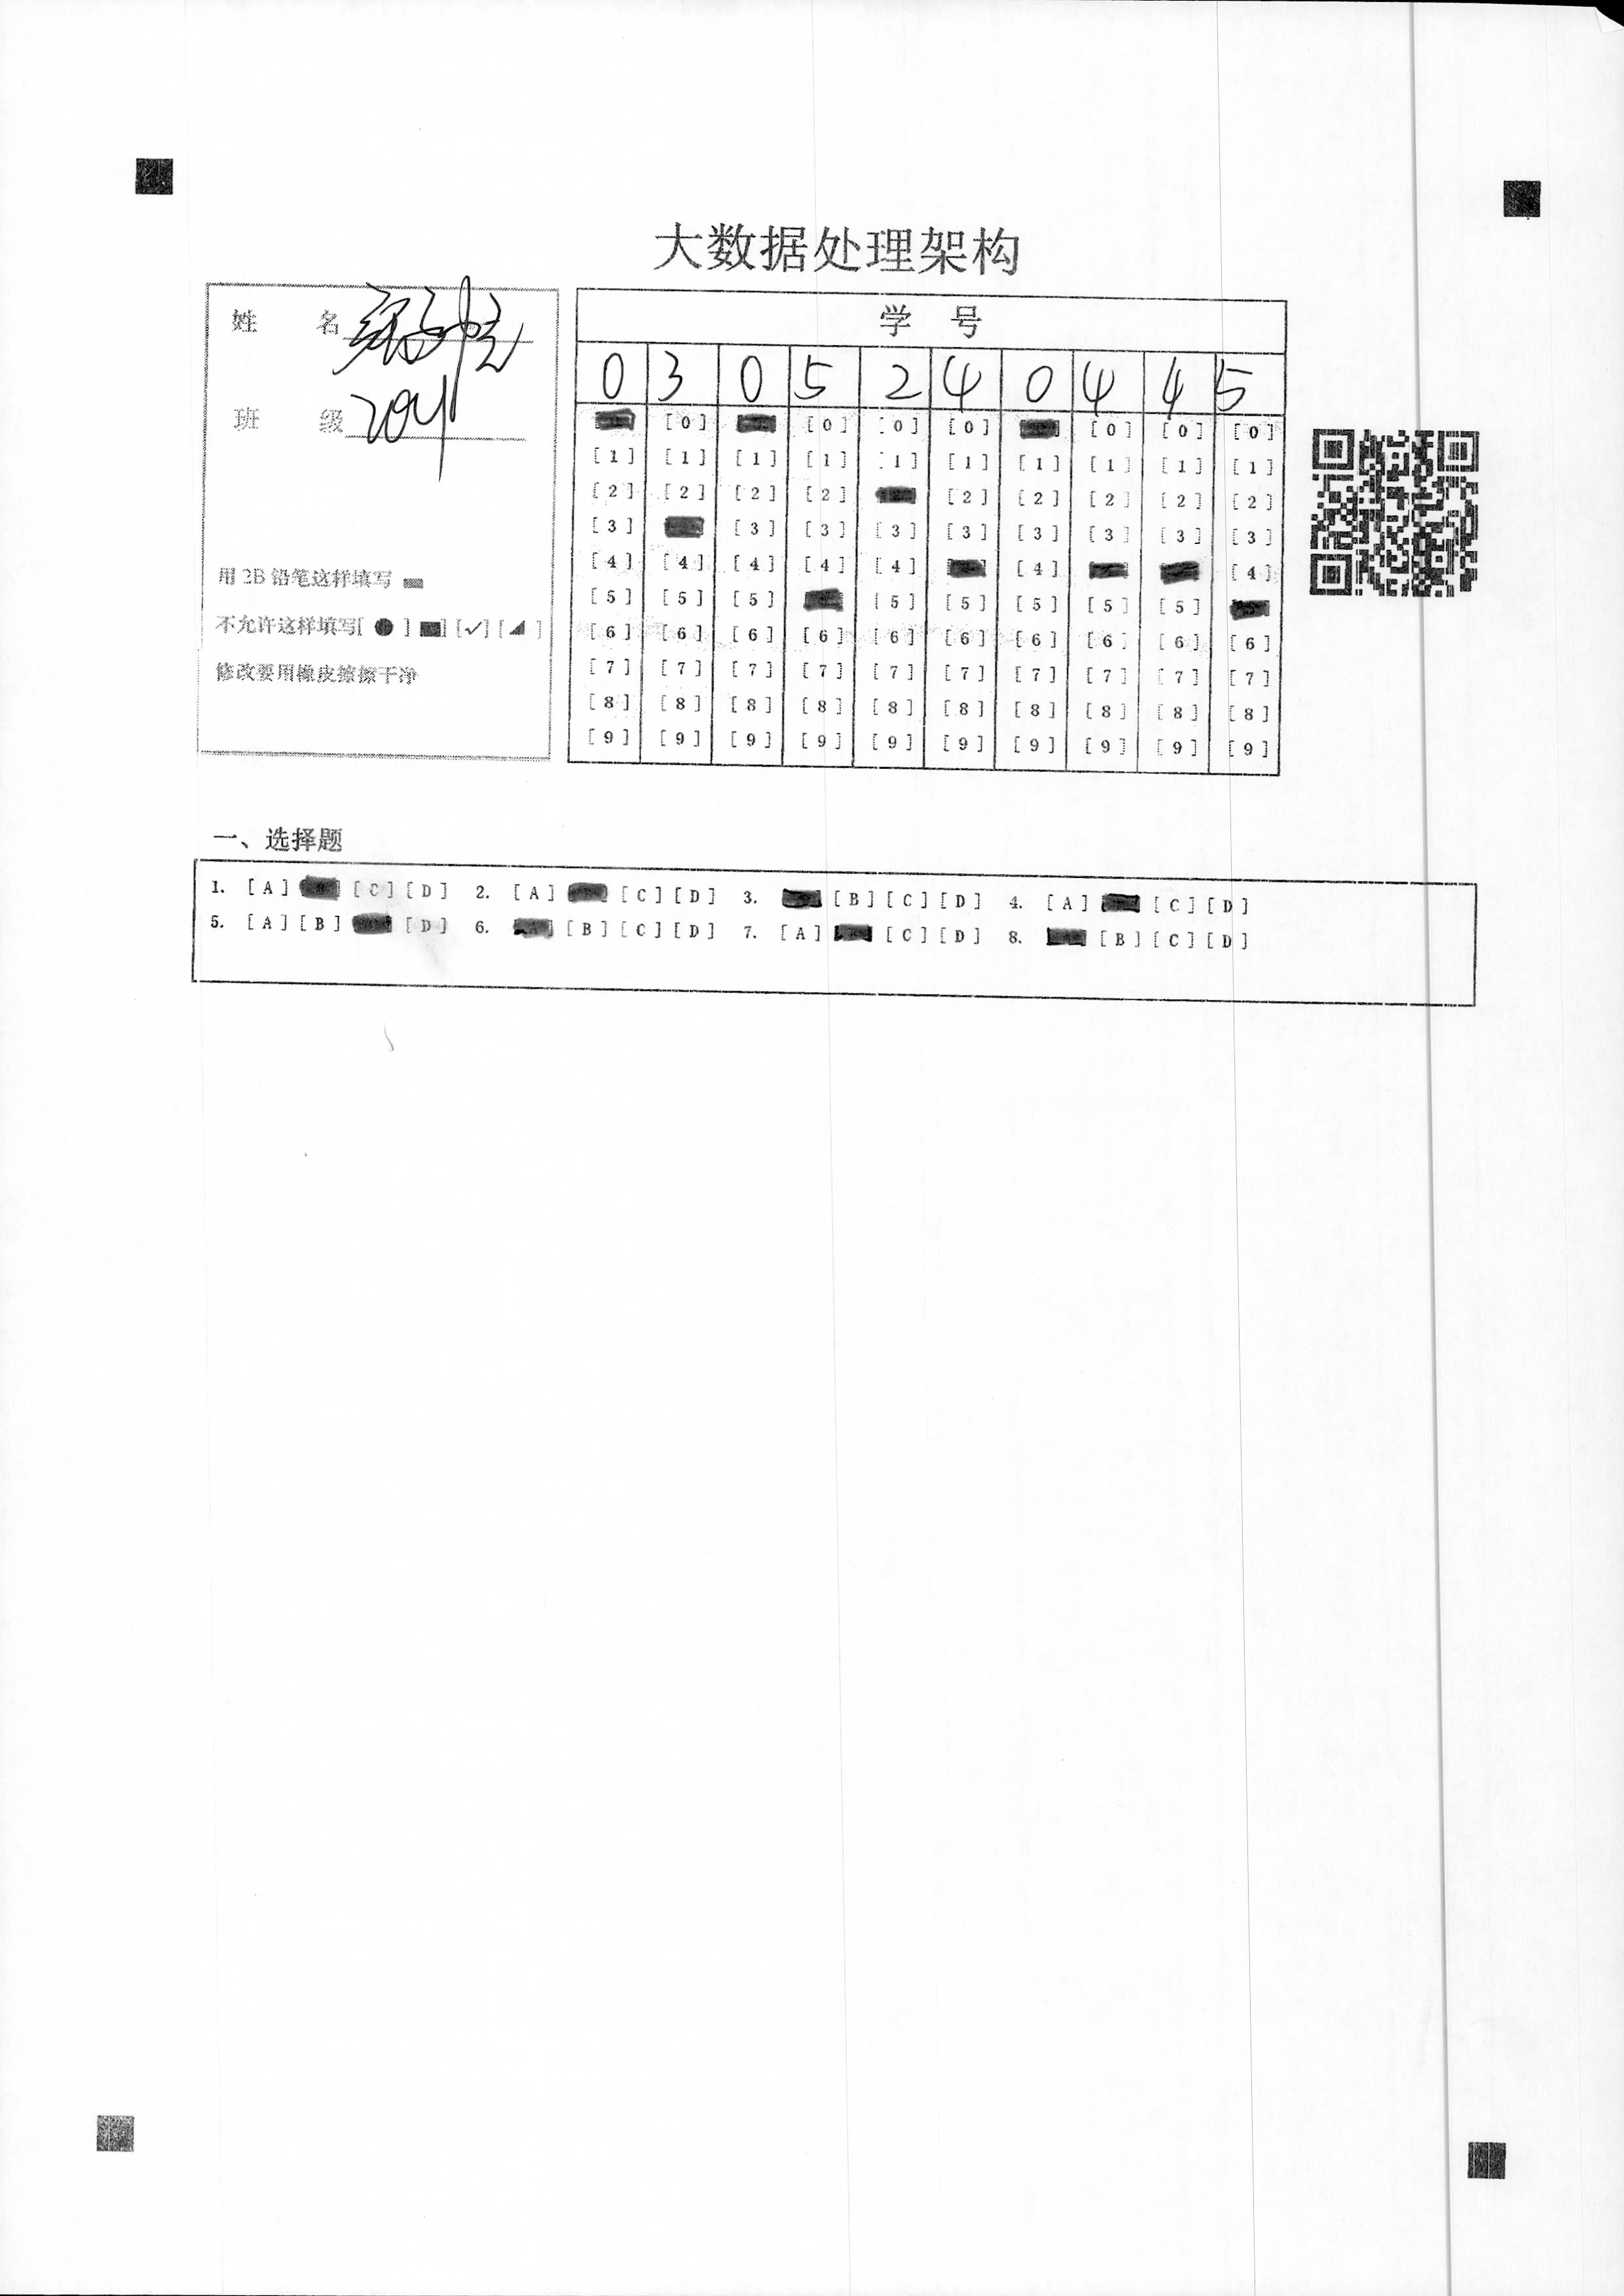 大数据处理架构
姓 名
班 级 2041
用 2B 铅笔这样填写
不允许这样填写[ ● ] [✓] [ ]
修改要用橡皮擦擦干净
学 号
0 3 0 5 2 4 0 4 4 5
[0] [0] [0] [0] [0] [0] [0]
[1] [1] [1] [1] [1] [1] [1] [1] [1] [1]
[2] [2] [2] [2] [2] [2] [2] [2] [2]
[3] [3] [3] [3] [3] [3] [3] [3] [3]
[4] [4] [4] [4] [4] [4] [4]
[5] [5] [5] [5] [5] [5] [5] [5]
[6] [6] [6] [6] [6] [6] [6] [6] [6] [6]
[7] [7] [7] [7] [7] [7] [7] [7] [7] [7]
[8] [8] [8] [8] [8] [8] [8] [8] [8] [8]
[9] [9] [9] [9] [9] [9] [9] [9] [9] [9]
一、选择题
1. [A] [C] [D] 2. [A] [C] [D] 3. [B] [C] [D] 4. [A] [C] [D]
5. [A] [B] [D] 6. [B] [C] [D] 7. [A] [C] [D] 8. [B] [C] [D]